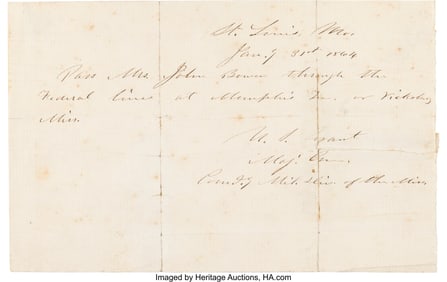 St. Louis, Mo,
Jan.y 31st 1864
Pass Mrs. John Bowen through the
Federal lines at Memphis Ten. or Vicksburg
Miss.
U. S. Grant
Maj. Gen.
Comd'g Mil. Div. of the Miss.
Imaged by Heritage Auctions, HA.com